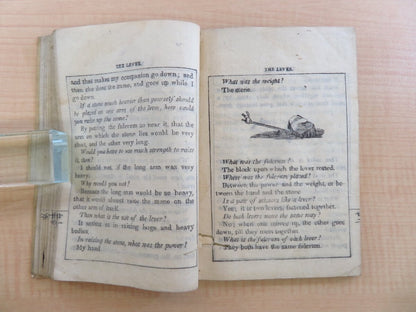 THE LEVER.
and that makes my companion go down; and
then she does the same, and goes up while I
go down.
If a stone much heavier than yourself should
be placed on one arm of the lever, how could
you raise up the stone?
By putting the fulcrum so near it, that the
arm on which the stone lies would be very
short, and the other very long.
Would you have to use much strength to raise
it, then?
I should not, if the long arm was very
heavy.
Why would you not?
Because the long arm would be so heavy,
that it would almost raise the stone on the
other arm of itself.
Then what is the use of the lever?
It assists us in raising huge and heavy
bodies.
In raising the stone, what was the power?
My hand
THE LEVER.
What was the weight?
The stone.
What was the fulcrum?
The block upon which the lever rested.
Where was the fulcrum placed?
Between the power and the weight, or be-
tween the hand and the stone
Is a pair of scissors like a lever?
Yes; it is two levers, fastened together.
Do both levers move the same way?
No; when one moves up, the other goes
down, till they come together
What is the fulcrum of each lever?
They both have the same fulcrum.